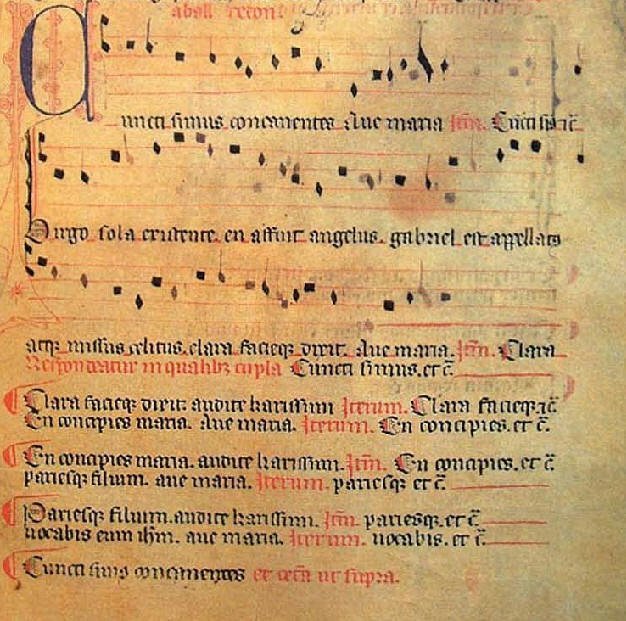 a ball redon
Cuncti simus concanentes Aue maria Itm. Cuncti sim9 ec̄
Virgo sola existente en affuit angelus. gabriel est appellatus
atq; missus celitus. clara facieq; dixit. Aue maria. Itm. Clara
Respondeatur in qualibz copla Cuncti simus. et c̄.
Clara facieq; dixit. audite karissimi Iterum. Clara facieq; ec̄
En concipies maria. aue maria. Iterum. En concipies. et c̄.
En concipies maria. audite karissimi. Itm. En concipies. et c̄
pariesq; filium. aue maria. Iterum. pariesq; et c̄.
Pariesq; filium. audite karissimi. Itm. pariesq;. et c̄.
uocabis eum ihm. aue maria. Iterum. uocabis. et c̄.
Cuncti simus concanentes et cetera ut supra.